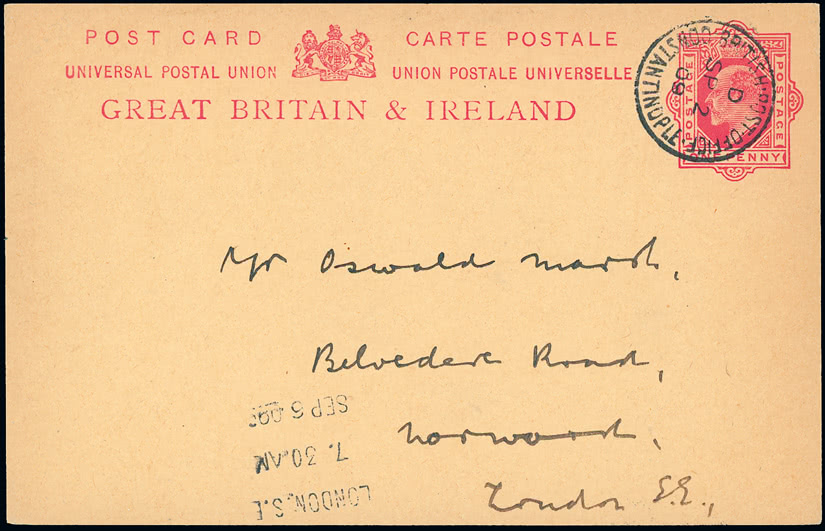 POST CARD CARTE POSTALE
UNIVERSAL POSTAL UNION UNION POSTALE UNIVERSELLE
GREAT BRITAIN & IRELAND
BRITISH·POST·OFFICE·CONSTANTINOPLE·
D
SP 2
09
POSTAGE
POSTAGE
PENNY
Mr Oswald Marsh,
Belvedere Road,
Norwood,
London S.E.,
LONDON, S.E
7. 30.AM
SEP 6 09